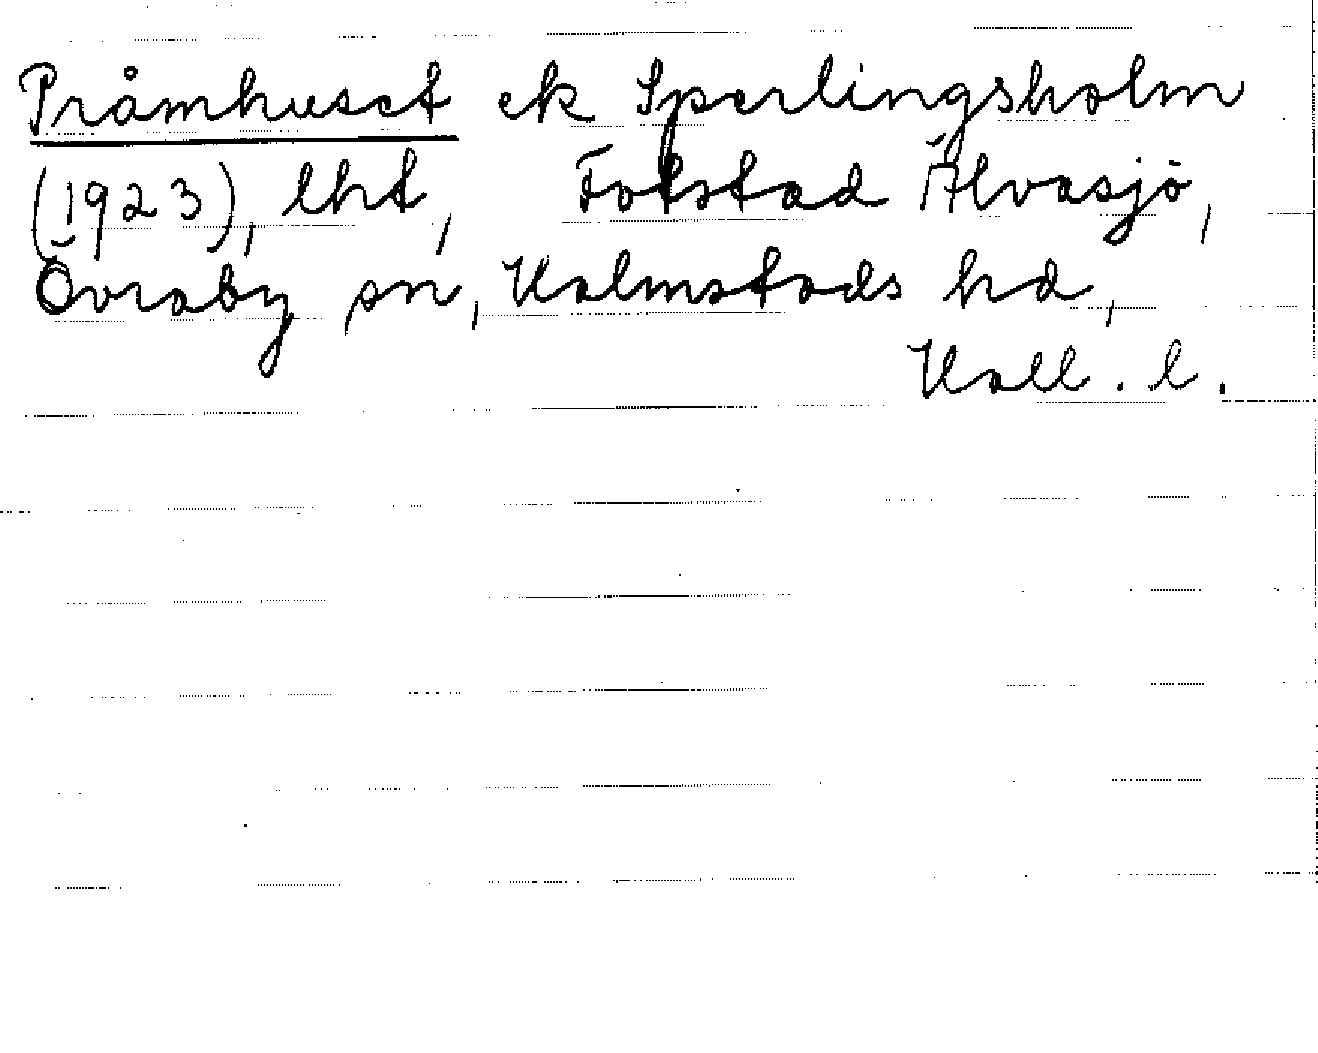 Pråmhuset ek Sperlingsholm
(1923), lht, Fotstad Älvasjö,
Övraby sn, Halmstads hd,
Hall. l.